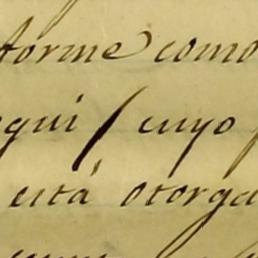 forme como
equi / cuyo
está otorga